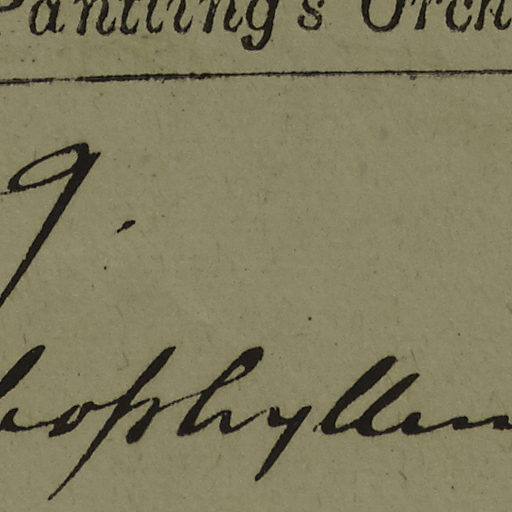 Pantling's Orch
9.
bophyllum